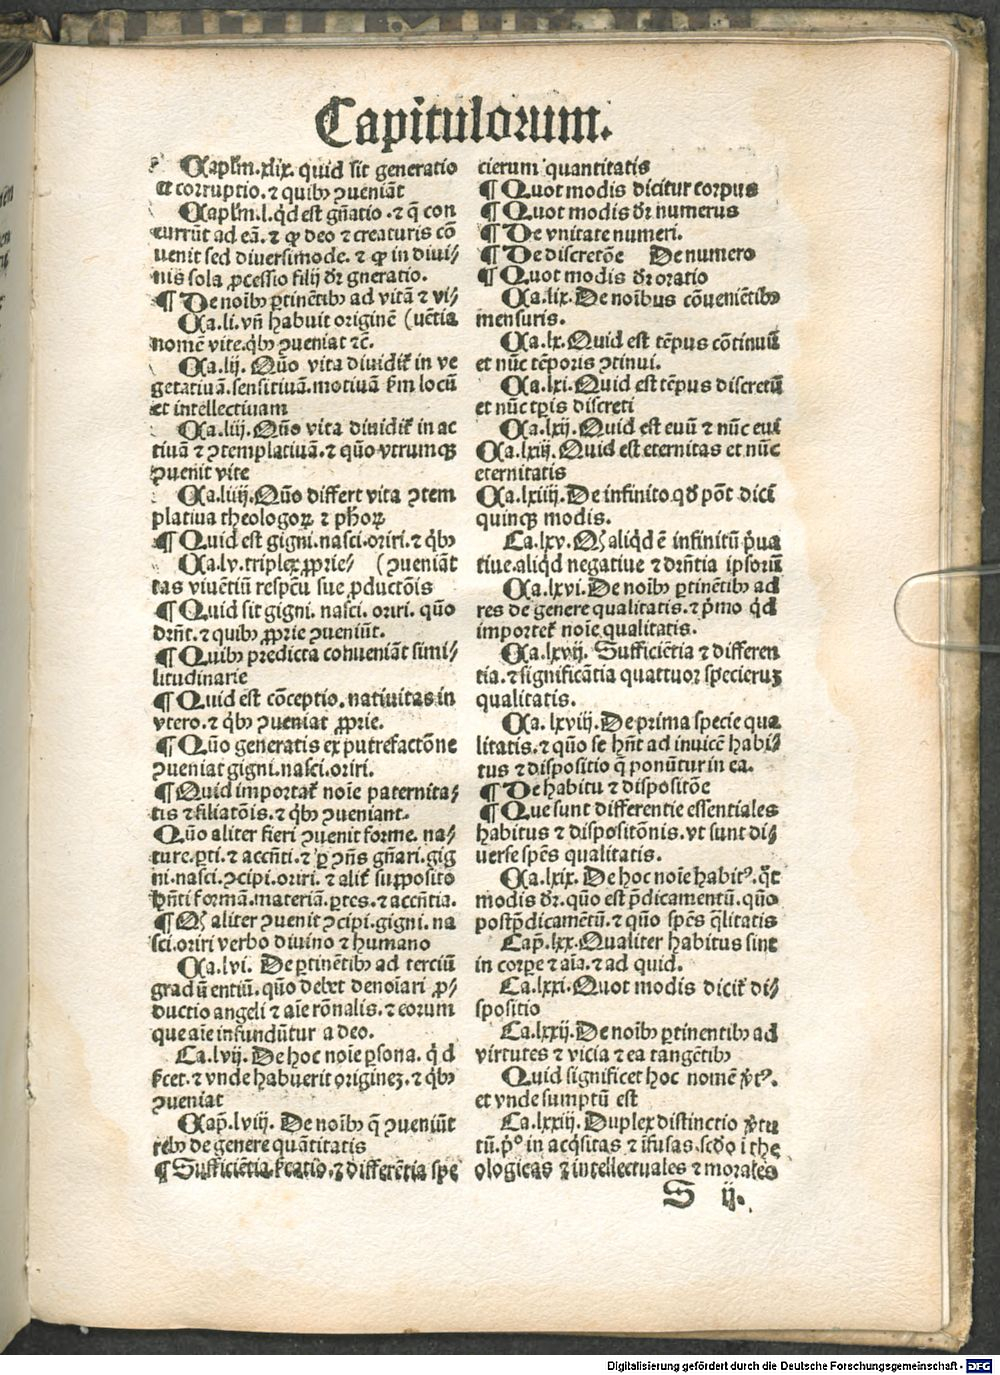 Capitulorum.
Caplm̄.xlix. quid sit generatio
et corruptio. ⁊ quibꝰ ꝯueniāt
Caplm̄.l.qd̄ est gn̄atio .⁊ q̄ con
currūt ad eā. ⁊ ꝙ deo ⁊ creaturis cō
uenit sed diuersimode. ⁊ ꝙ in diui⸗
nis sola ꝓcessio filij dr̄ gneratio.
¶ De noībꝰ ꝑtinētibꝰ ad vitā ⁊ vi⸗
Ca.li. vn̄ habuit originē (uētia
nomē vite.qb̄ꝰ ꝯueniat ⁊c̄.
Ca.lij. Quō vita diuidit̄ in ve
getatiuā.sensitiuā.motiuā ẜm locū
et intellectiuam
Ca.liij. Quō vita diuidit̄ in ac
tiuā ⁊ ꝯtemplatiuā.⁊ quō vtrumqꝫ
ꝯuenit vite
Ca.liiij.Quō differt vita ꝯtem
platiua theologoꝝ ⁊ ph̄oꝝ
¶ Quid est gigni.nasci.oriri.⁊ qb̄ꝰ
Ca.lv.triplex ꝓprie⸗ (ꝯueniāt
tas viuētiū respc̄u sue ꝓductōis
¶ Quid sit gigni. nasci. oriri. quō
drn̄t. ⁊ quibꝰ ꝓprie ꝯueniūt.
¶ Quibꝰ predicta conueniāt simi⸗
litudinarie
¶ Quid est cōceptio.natiuitas in
vtero.⁊ qb̄ꝰ ꝯueniat ꝓprie.
¶ Quō generatis ex putrefactōne
ꝯueniat gigni.nasci.oriri.
¶ Quid importat̄ noīe paternita⸗
tis ⁊ filiatōis.⁊ qb̄ꝰ ꝯueniant.
Quō aliter fieri ꝯuenit forme. na⸗
ture.ꝑti.⁊ accn̄ti.⁊ ꝑ ꝯn̄s gn̄ari.gig
ni.nasci.ꝯcipi.oriri.⁊ alit̄ supposito
hn̄ti formā.materiā.ꝑtes.⁊ accn̄tia.
¶ Qꝫ aliter ꝯuenit ꝯcipi.gigni.na
sci.oriri verbo diuino ⁊ humano
Ca.lvi. De ꝑtinētibꝰ ad terciū
gradū entiū.quō debet denoīari ꝓ⸗
ductio angeli ⁊ aīe rōnalis.⁊ eorum
que aīe infundūtur a deo.
Ca.lvij. De hoc noīe ꝑsona. qd̄
ẜcet.⁊ vnde habuerit origineꝫ.⁊ qb̄ꝰ
ꝯueniat
Cap̄.lviij. De noībꝰ q̄ ꝯueniūt
rebꝰ de genere quātitatis
¶ Sufficiētia.ẜcatio.⁊ differētia spe
cierum quantitatis
¶ Quot modis dicitur corpus
¶ Quot modis dr̄ numerus
¶ De vnitate numeri.
¶ De discretōe De numero
¶ Quot modis dr̄ oratio
Ca.lix.De noībus cōueniētibꝰ
mensuris.
Ca.lx.Quid est tēpus cōtinuū
et nūc tēporis ꝯtinui.
Ca.lxi.Quid est tēpus discretū
et nūc tꝑis discreti
Ca.lxij.Quid est euū ⁊ nūc eui
Ca.lxiij.Quid est eternitas et nūc
eternitatis
Ca.lxiiij.De infinito.qd̄ pōt dici
quinqꝫ modis.
Ca.lxv.Qꝫ aliqd̄ ē infinitū p̄ua
tiue.aliqd̄ negatiue ⁊ drn̄tia ipsorū
Ca.lxvi.De noībꝰ ꝑtinētibꝰ ad
res de genere qualitatis.⁊ p̄mo qd̄
importet̄ noīe qualitatis.
Ca.lxvij. Sufficiētia ⁊ differen
tia.⁊ significātia quattuor specieruꝫ
qualitatis.
Ca. lxviij. De prima specie qua
litatis.⁊ quō se hn̄t ad inuicē habi⸗
tus ⁊ dispositio q̄ ponūtur in ea.
¶ De habitu ⁊ dispositōe
¶ Que sunt differentie essentiales
habitus ⁊ dispositōnis.vt sunt di⸗
uerse spēs qualitatis.
Ca.lxix. De hoc noīe habitꝰ.qt̄
modis dr̄. quō est p̄dicamentū.quō
postp̄dicamētū.⁊ quō spēs q̄litatis
Cap̄.lxx.Qualiter habitus sint
in corꝑe ⁊ aīa.⁊ ad quid.
Ca.lxxi.Quot modis dicit̄ di⸗
spositio
Ca.lxxij.De noībꝰ ꝑtinentibꝰ ad
virtutes ⁊ vicia ⁊ ea tangētibꝰ
Quid significet hoc nomē v̄tꝰ.
et vnde sumptū est
Ca.lxxiij. Duplex distinctio v̄tu
tū.p̄º in acqs̄itas ⁊ īfusas.scd̄o ī the
ologicas ⁊ intellectuales ⁊ morales
S ij.
Digitalisierung gefördert durch die Deutsche Forschungsgemeinschaft - DFG